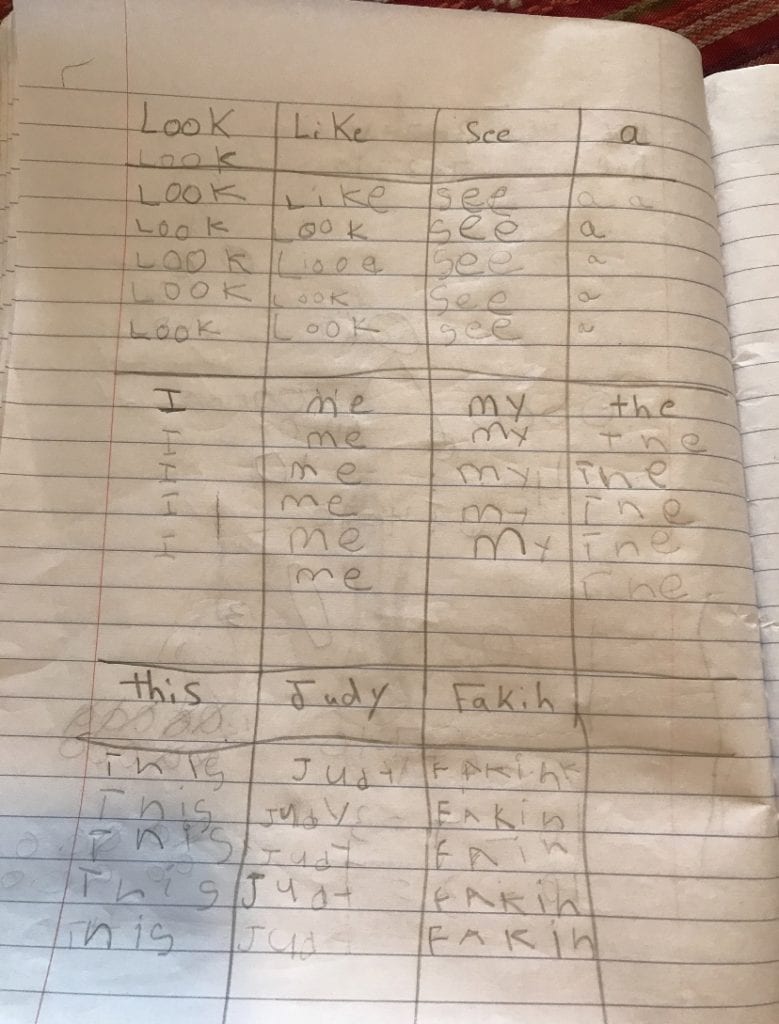 Look Like See a
Look
Look Like see a a
Look Look see a
Look Liooe see a
Look Look see a
Look Look see a
I me my the
I me my tne
I me my Tne
I me my Tne
I me My Tne
me Tne
this Judy Fakih
This Judt FAkih
This JudY FAkin
This JudT FAin
This Judt FAkih
This Jud FAkih